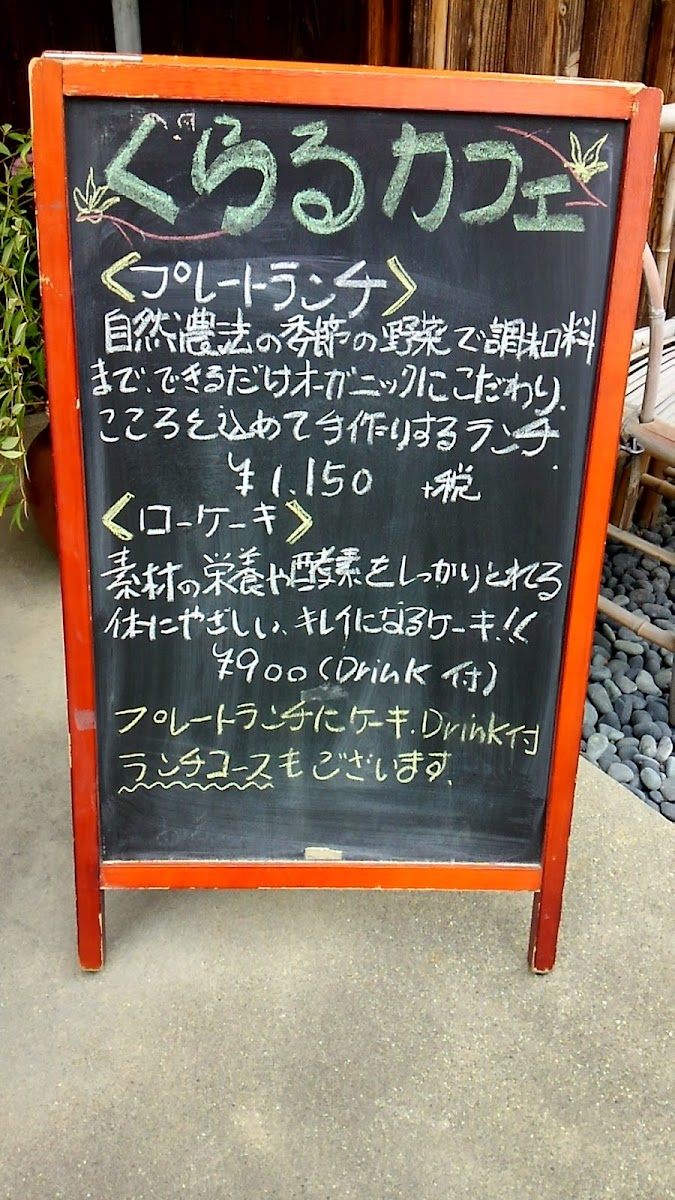 くらるカフェ
<プレートランチ>
自然農法の季節の野菜で調和料
まで、できるだけオーガニックにこだわり、
こころを込めて手作りするランチ.
¥1,150 +税
<ローケーキ>
素材の栄養や酵素をしっかりとれる
体にやさしい、キレイになるケーキ!!
¥900(Drink付)
プレートランチにケーキ、Drink付
ランチコースもございます。